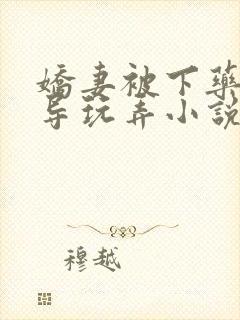 嬌妻被下藥
导玩弄小說
穆越